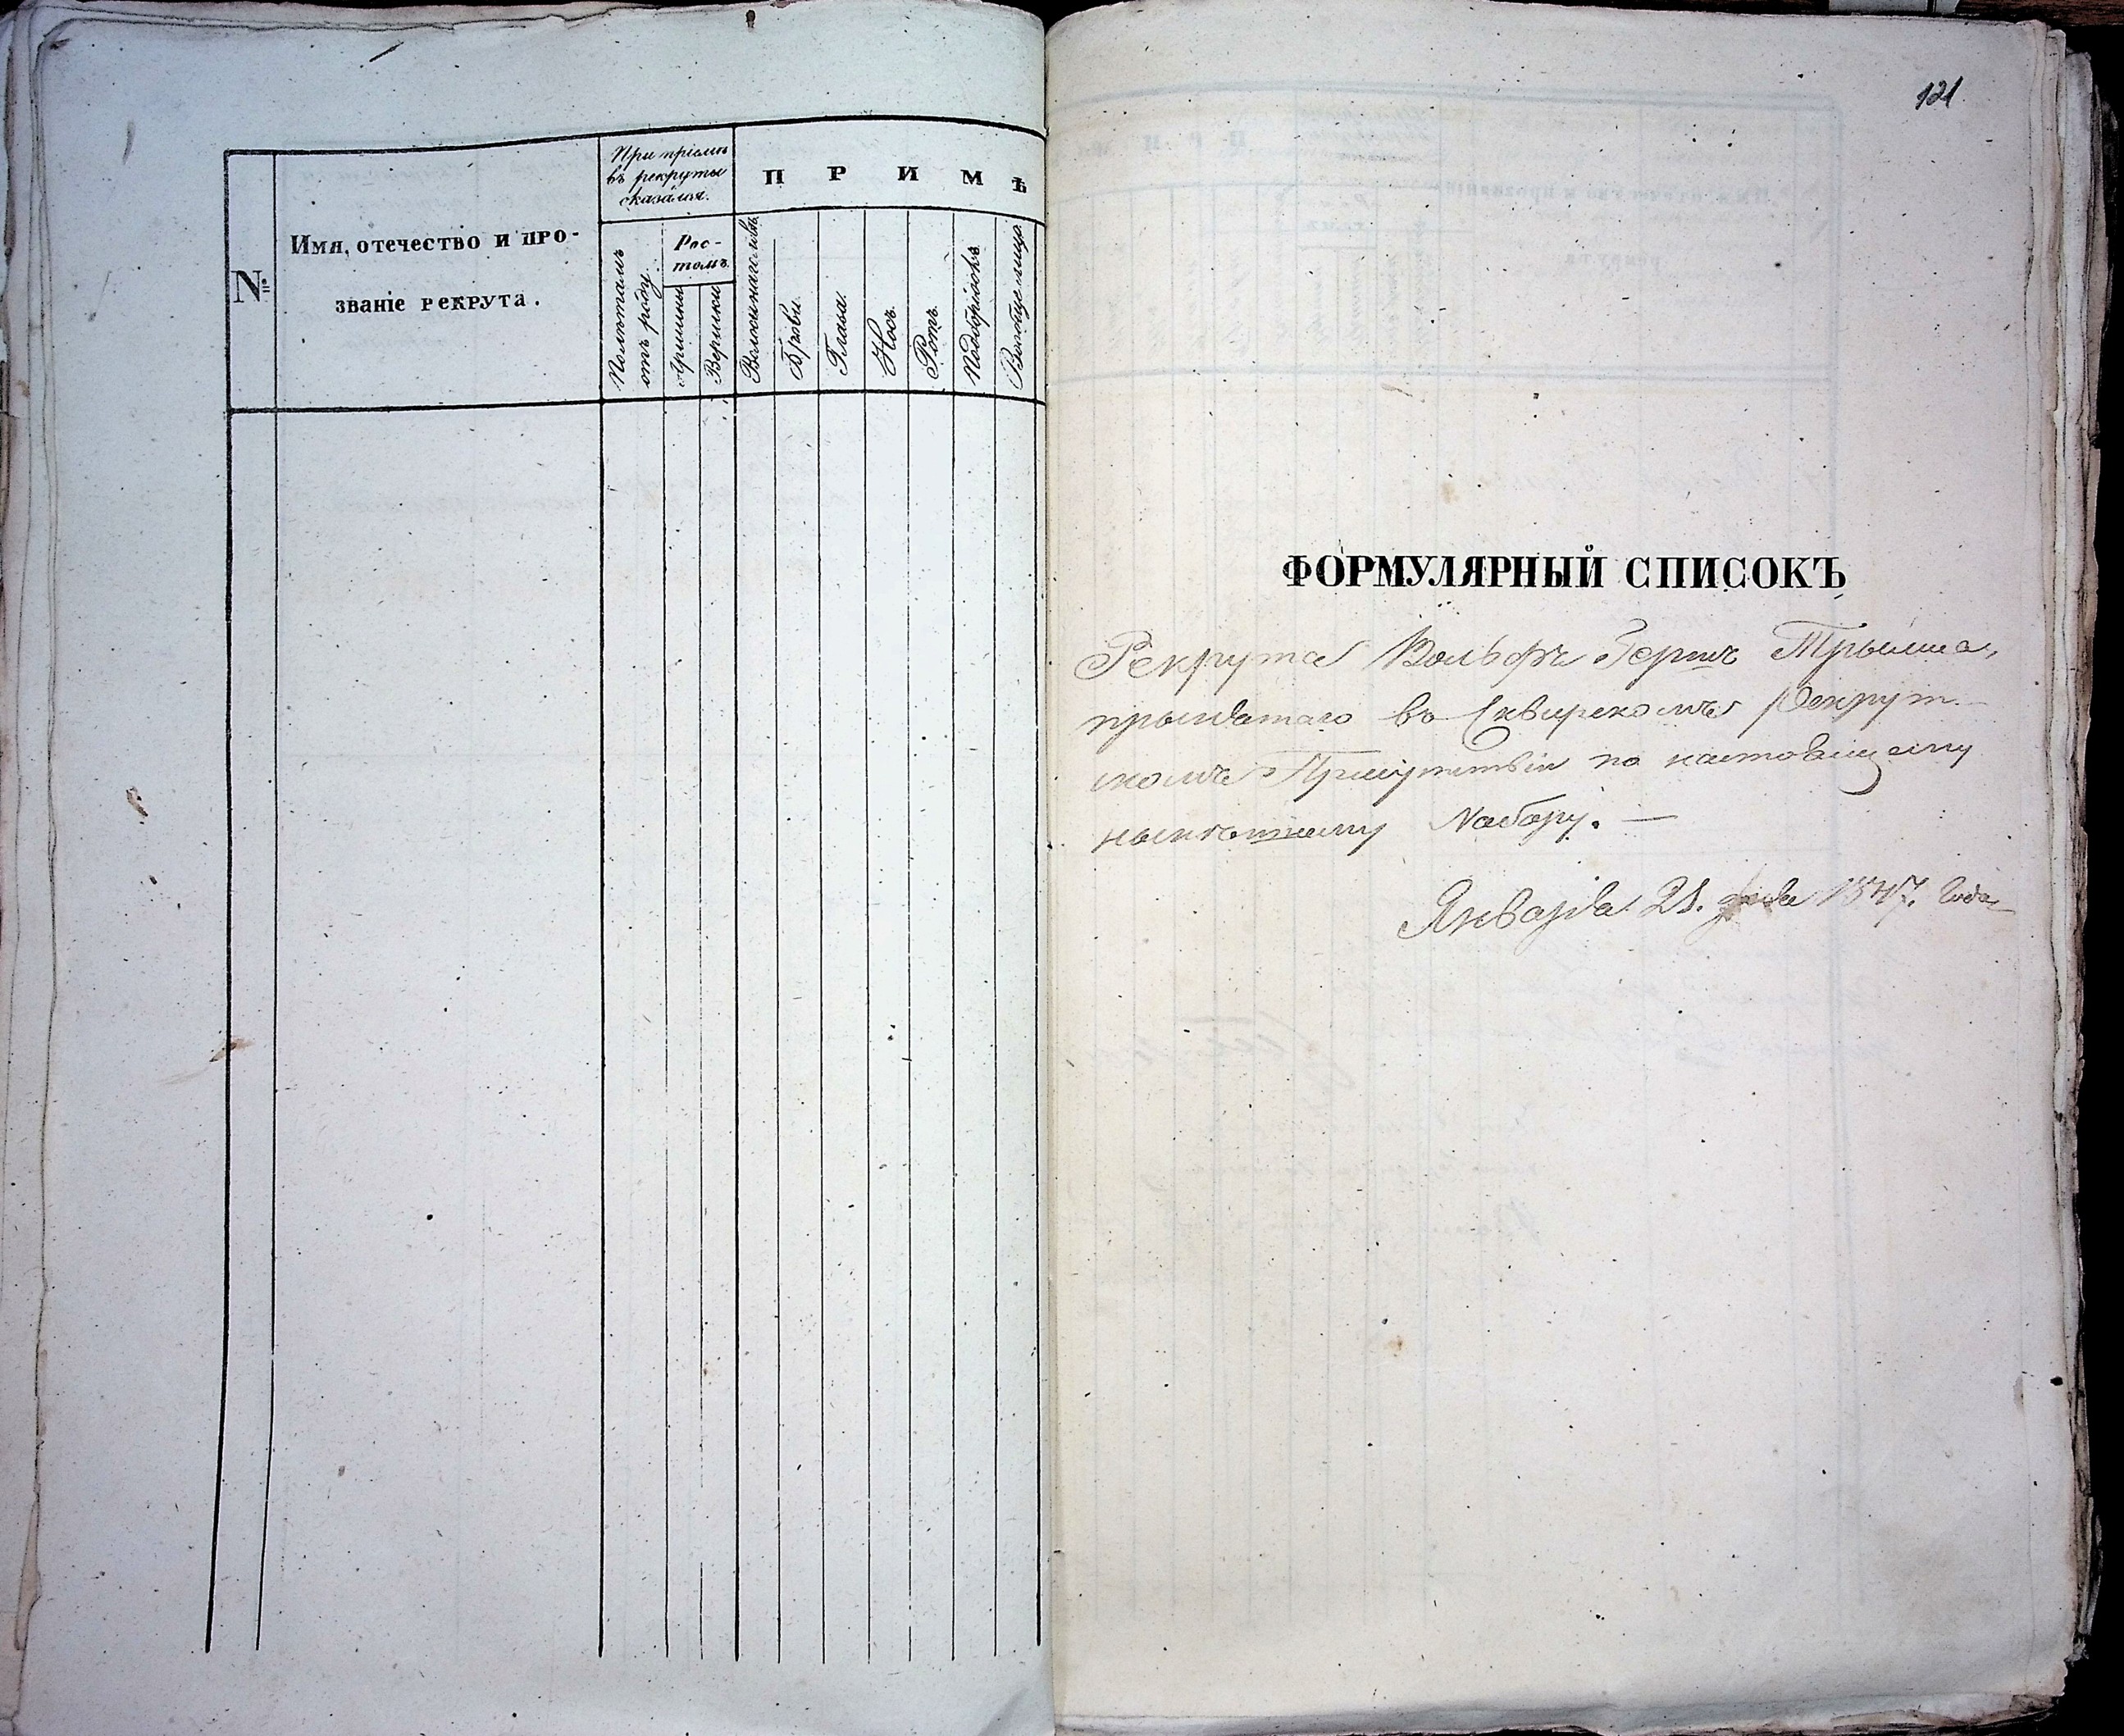 №
Имя, отечество и про-
званіе рекрута.
При пріемѣ
въ рекруты
оказался.
Полѣтамъ
отъ роду.
Рос-
томъ.
Аршины
Вершки
П Р И М Ѣ
Волосы на головѣ
Брови.
Глаза.
Носъ.
Ротъ.
Подбородокъ
Вообще лицо.
121
ФОРМУЛЯРНЫЙ СПИСОКЪ
Рекрута Вольфъ Гершъ
принятаго въ Сквирскомъ Рекрут-
скомъ Присутствіи по настоящему
Набору. —
Января 21. дня 1847. Года